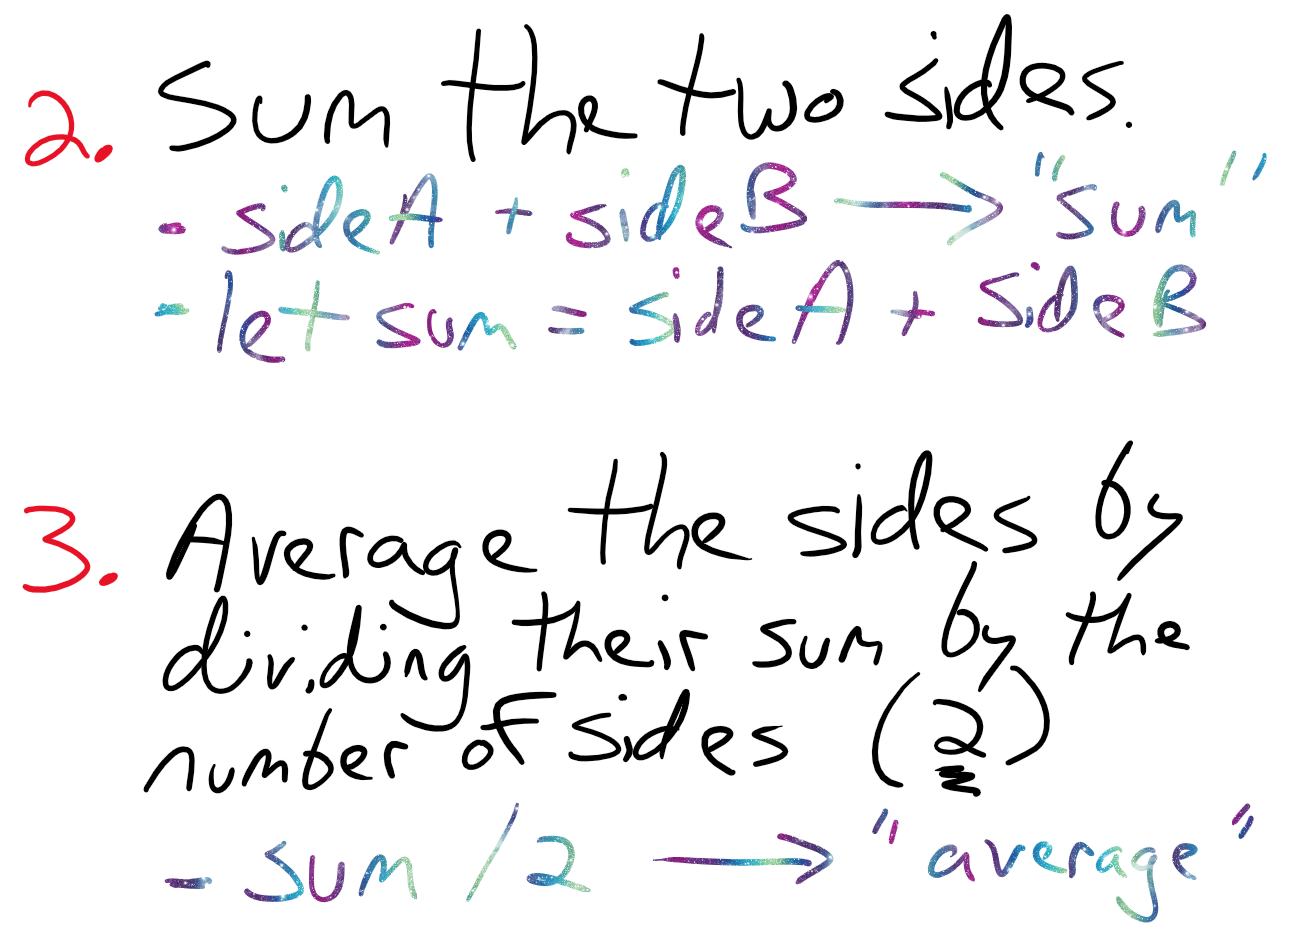 2. Sum the two sides.
- sideA + sideB → "sum"
- let sum = sideA + sideB
3. Average the sides by
dividing their sum by the
number of sides (2)
- sum / 2 → "average"